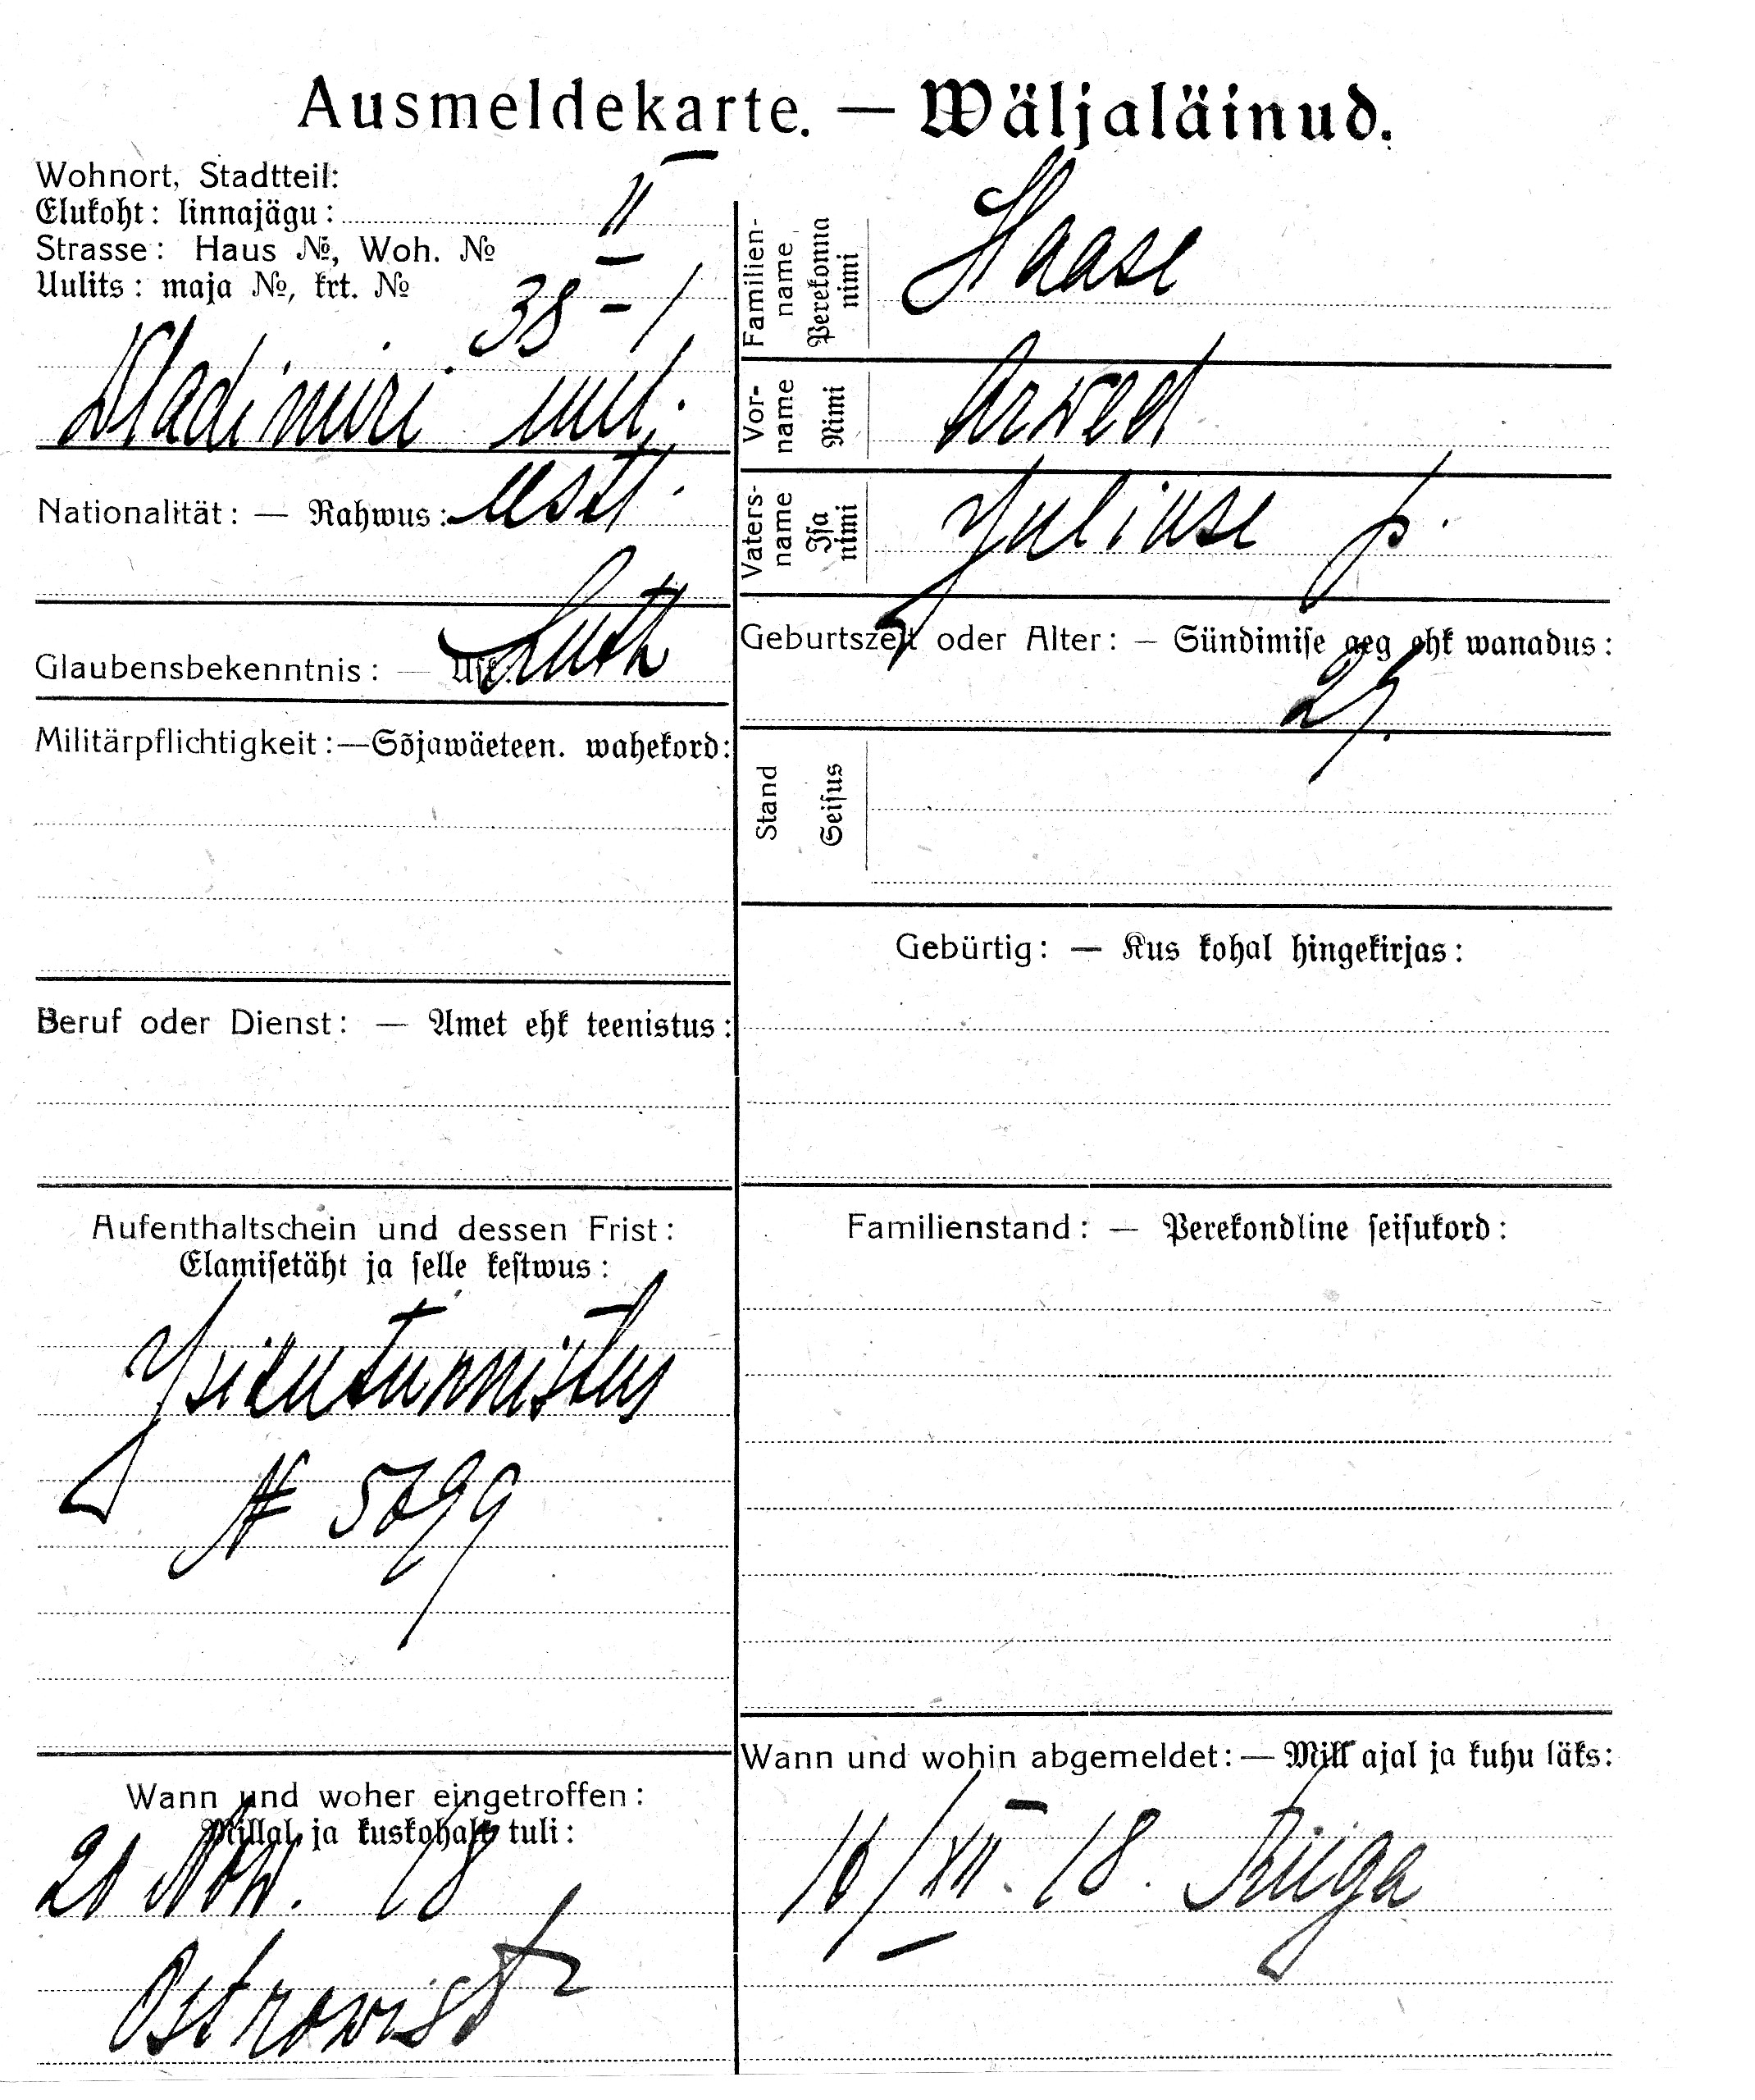 Ausmeldekarte. — Wäljaläinud.
Wohnort, Stadtteil:
Elukoht: linnajägu: II
Strasse: Haus №, Woh. №
Uulits: maja №, krt. № 38 - 1
Wladimiri uul.
Nationalität: — Rahwus: eestl.
Glaubensbekenntnis: — Usk: Luth
Militärpflichtigkeit:—Sõjawäeteen. wahekord:
Beruf oder Dienst: — Amet ehk teenistus:
Aufenthaltschein und dessen Frist:
Elamisetäht ja selle kestwus:
Isikutunnistus
№ 5799
Wann und woher eingetroffen:
Millal ja kuskohalt tuli:
21 Now. 18
Ostrowist
Familien-
name
Perekonna
nimi
Haase
Vor-
name
Nimi
Arwed
Vaters-
name
Isa
nimi
Juliuse p.
Geburtszeit oder Alter: — Sündimise aeg ehk wanadus:
Stand
Seisus
Gebürtig: — Kus kohal hingekirjas:
Familienstand: — Perekondline seisukord:
Wann und wohin abgemeldet:— Mill ajal ja kuhu läks:
16/XII. 18. Riiga